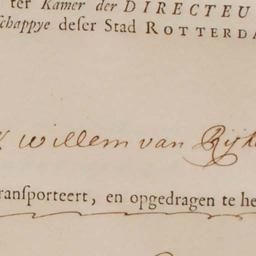 ter Kamer der DIRECTEU
schappye deſer Stad ROTTERDA
willem van Rijk
ransporteert, en opgedragen te he